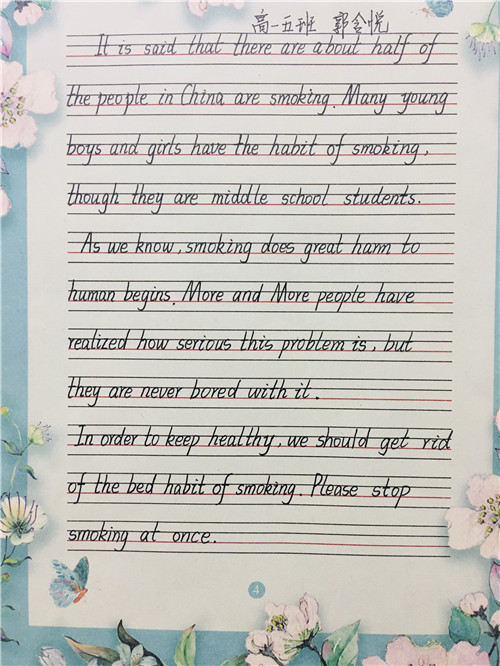 高一五班 郭含悦
It is said that there are about half of
the people in China are smoking. Many young
boys and girls have the habit of smoking,
though they are middle school students.
As we know, smoking does great harm to
human begins. More and More people have
realized how serious this problem is, but
they are never bored with it.
In order to keep healthy, we should get rid
of the bed habit of smoking. Please stop
smoking at once.
4